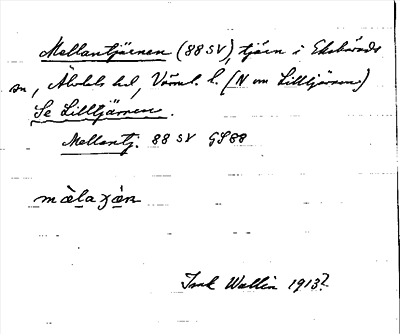 Mellantjärnen (88 SV), tjärn i Ekshärads
sn, Älvdals hd, Värml. l. (N om Lilltjärnen)
Se Lilltjärnen.
Mellantj. 88 SV GS 88
mä̀laχä̀n
Isak Wallin 1913?